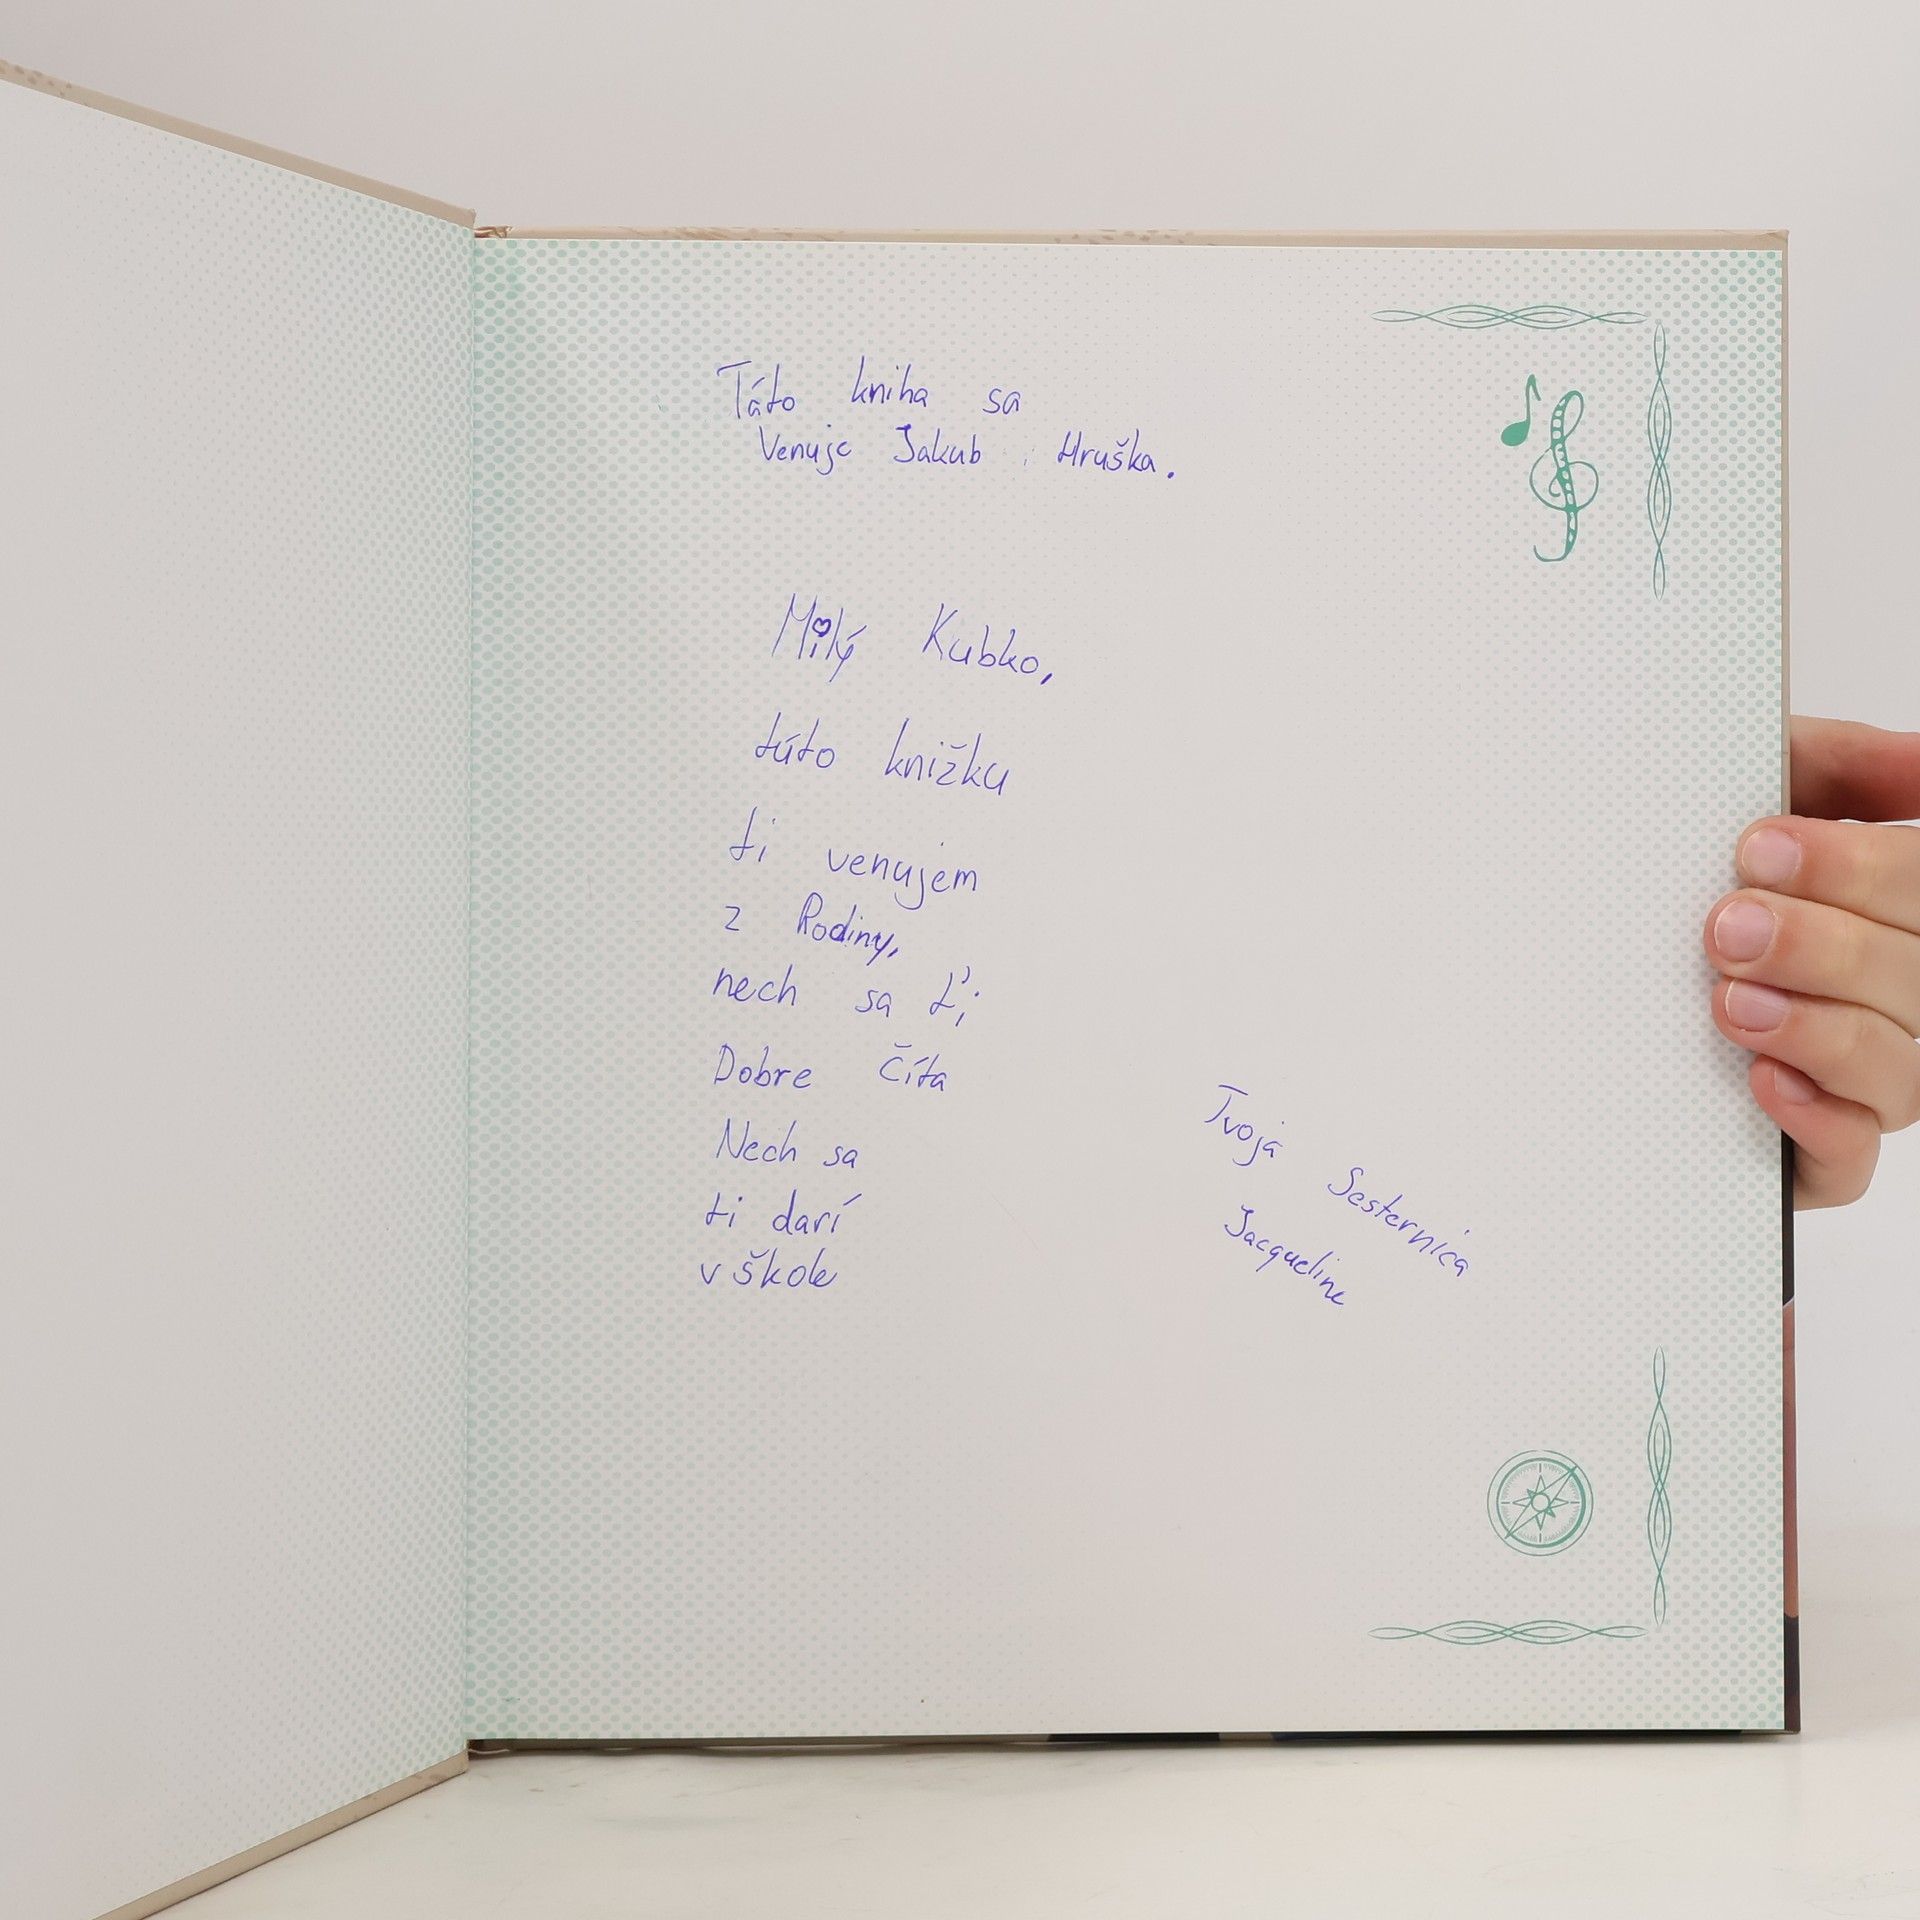 Táto kniha sa
Venuje Jakub Hruška.
Milý Kubko,
túto knižku
ti venujem
z Rodiny,
nech sa ťi
Dobre Číta
Nech sa
ti darí
v škole
Tvoja Sesternica
Jacqueline